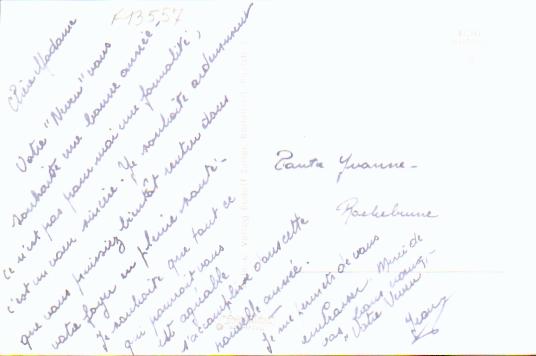 F13557
Chère Madame
Votre "Nveu" vous
souhaite une bonne année.
Ce n'est pas pour moi une formalité,
c'est un vœu sincère. Je souhaite ardemment
que vous puissiez bientôt rentrer dans
votre foyer en pleine santé.
Je souhaite que tout ce
qui pourrait vous
est agréable
s'accomplisse dans cette
nouvelle année.
Je me permets de vous
embrasser. Merci de
pour nous.
"Votre Nveu"
Tanta Yvanne-
Rochebrune